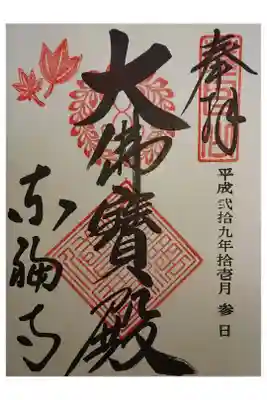 奉拝
平成弐拾九年拾壱月参日
大佛寳殿
东福寺